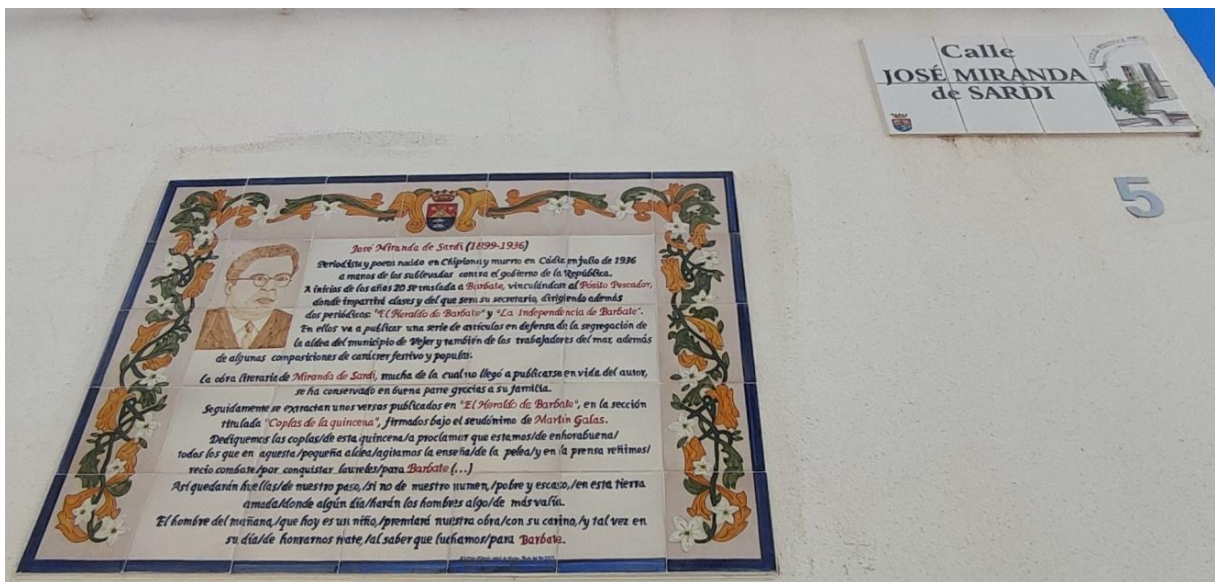 Calle
JOSÉ MIRANDA
de SARDI
5
José Miranda de Sardi (1899-1936)
Periodista y poeta nacido en Chipiona y muerto en Cádiz en julio de 1936
a manos de los sublevados contra el gobierno de la República.
A inicios de los años 20 se traslada a Barbate, vinculándose al Pósito Pescador,
donde impartirá clases y del que sera su secretario, dirigiendo además
dos periódicos: "El Heraldo de Barbate" y "La Independencia de Barbate".
En ellos va a publicar una serie de artículos en defensa de la segregación de
la aldea del municipio de Vejer y también de los trabajadores del mar, además
de algunas composiciones de carácter festivo y popular.
La obra literaria de Miranda de Sardi, mucha de la cual no llegó a publicarse en vida del autor,
se ha conservado en buena parte gracias a su familia.
Seguidamente se extractan unos versos publicados en "El Heraldo de Barbate", en la sección
titulada "Coplas de la quincena", firmados bajo el seudónimo de Martín Galas.
Dediquemos las coplas/de esta quincena/a proclamar que estamos/de enhorabuena/
todos los que en aquesta/pequeña aldea/agitamos la enseña/de la pelea/y en la prensa reñimos/
recio combate/por conquistar laureles/para Barbate (...)
Así quedarán huellas/de nuestro paso,/si no de nuestro numen,/pobre y escaso,/en esta tierra
amada/donde algún día/harán los hombres algo/de más valía.
El hombre del mañana,/que hoy es un niño,/premiará nuestra obra/con su cariño,/y tal vez en
su día/de honrarnos trate,/al saber que luchamos/para Barbate.